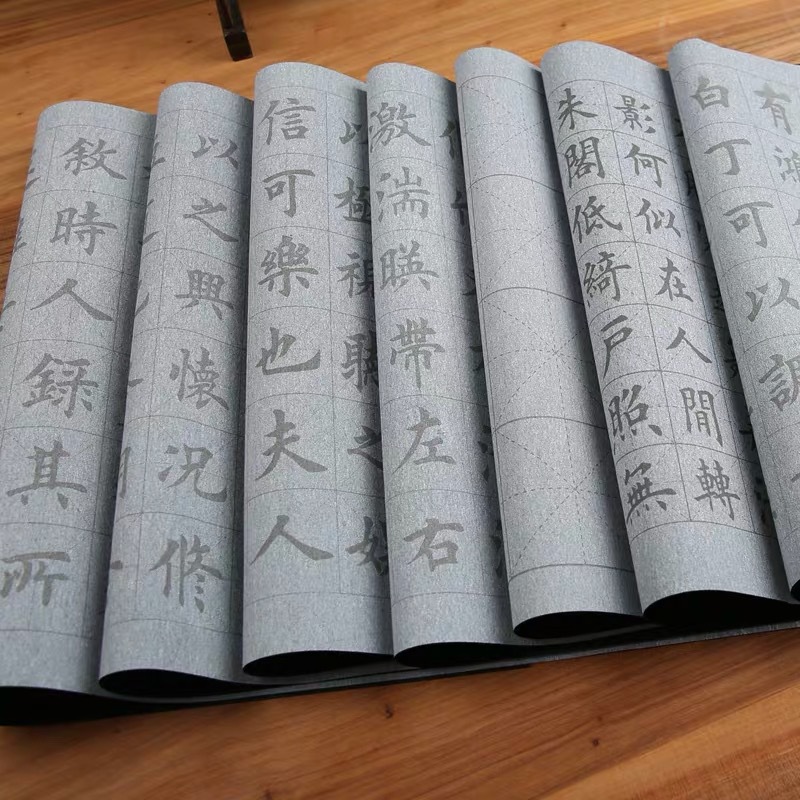 有鴻
白丁可以調
影何似在人閒轉
朱閣低綺戶照無
激湍暎帶左右
以極視聽之
信可樂也夫人
以之興懷况修
敘時人録其所